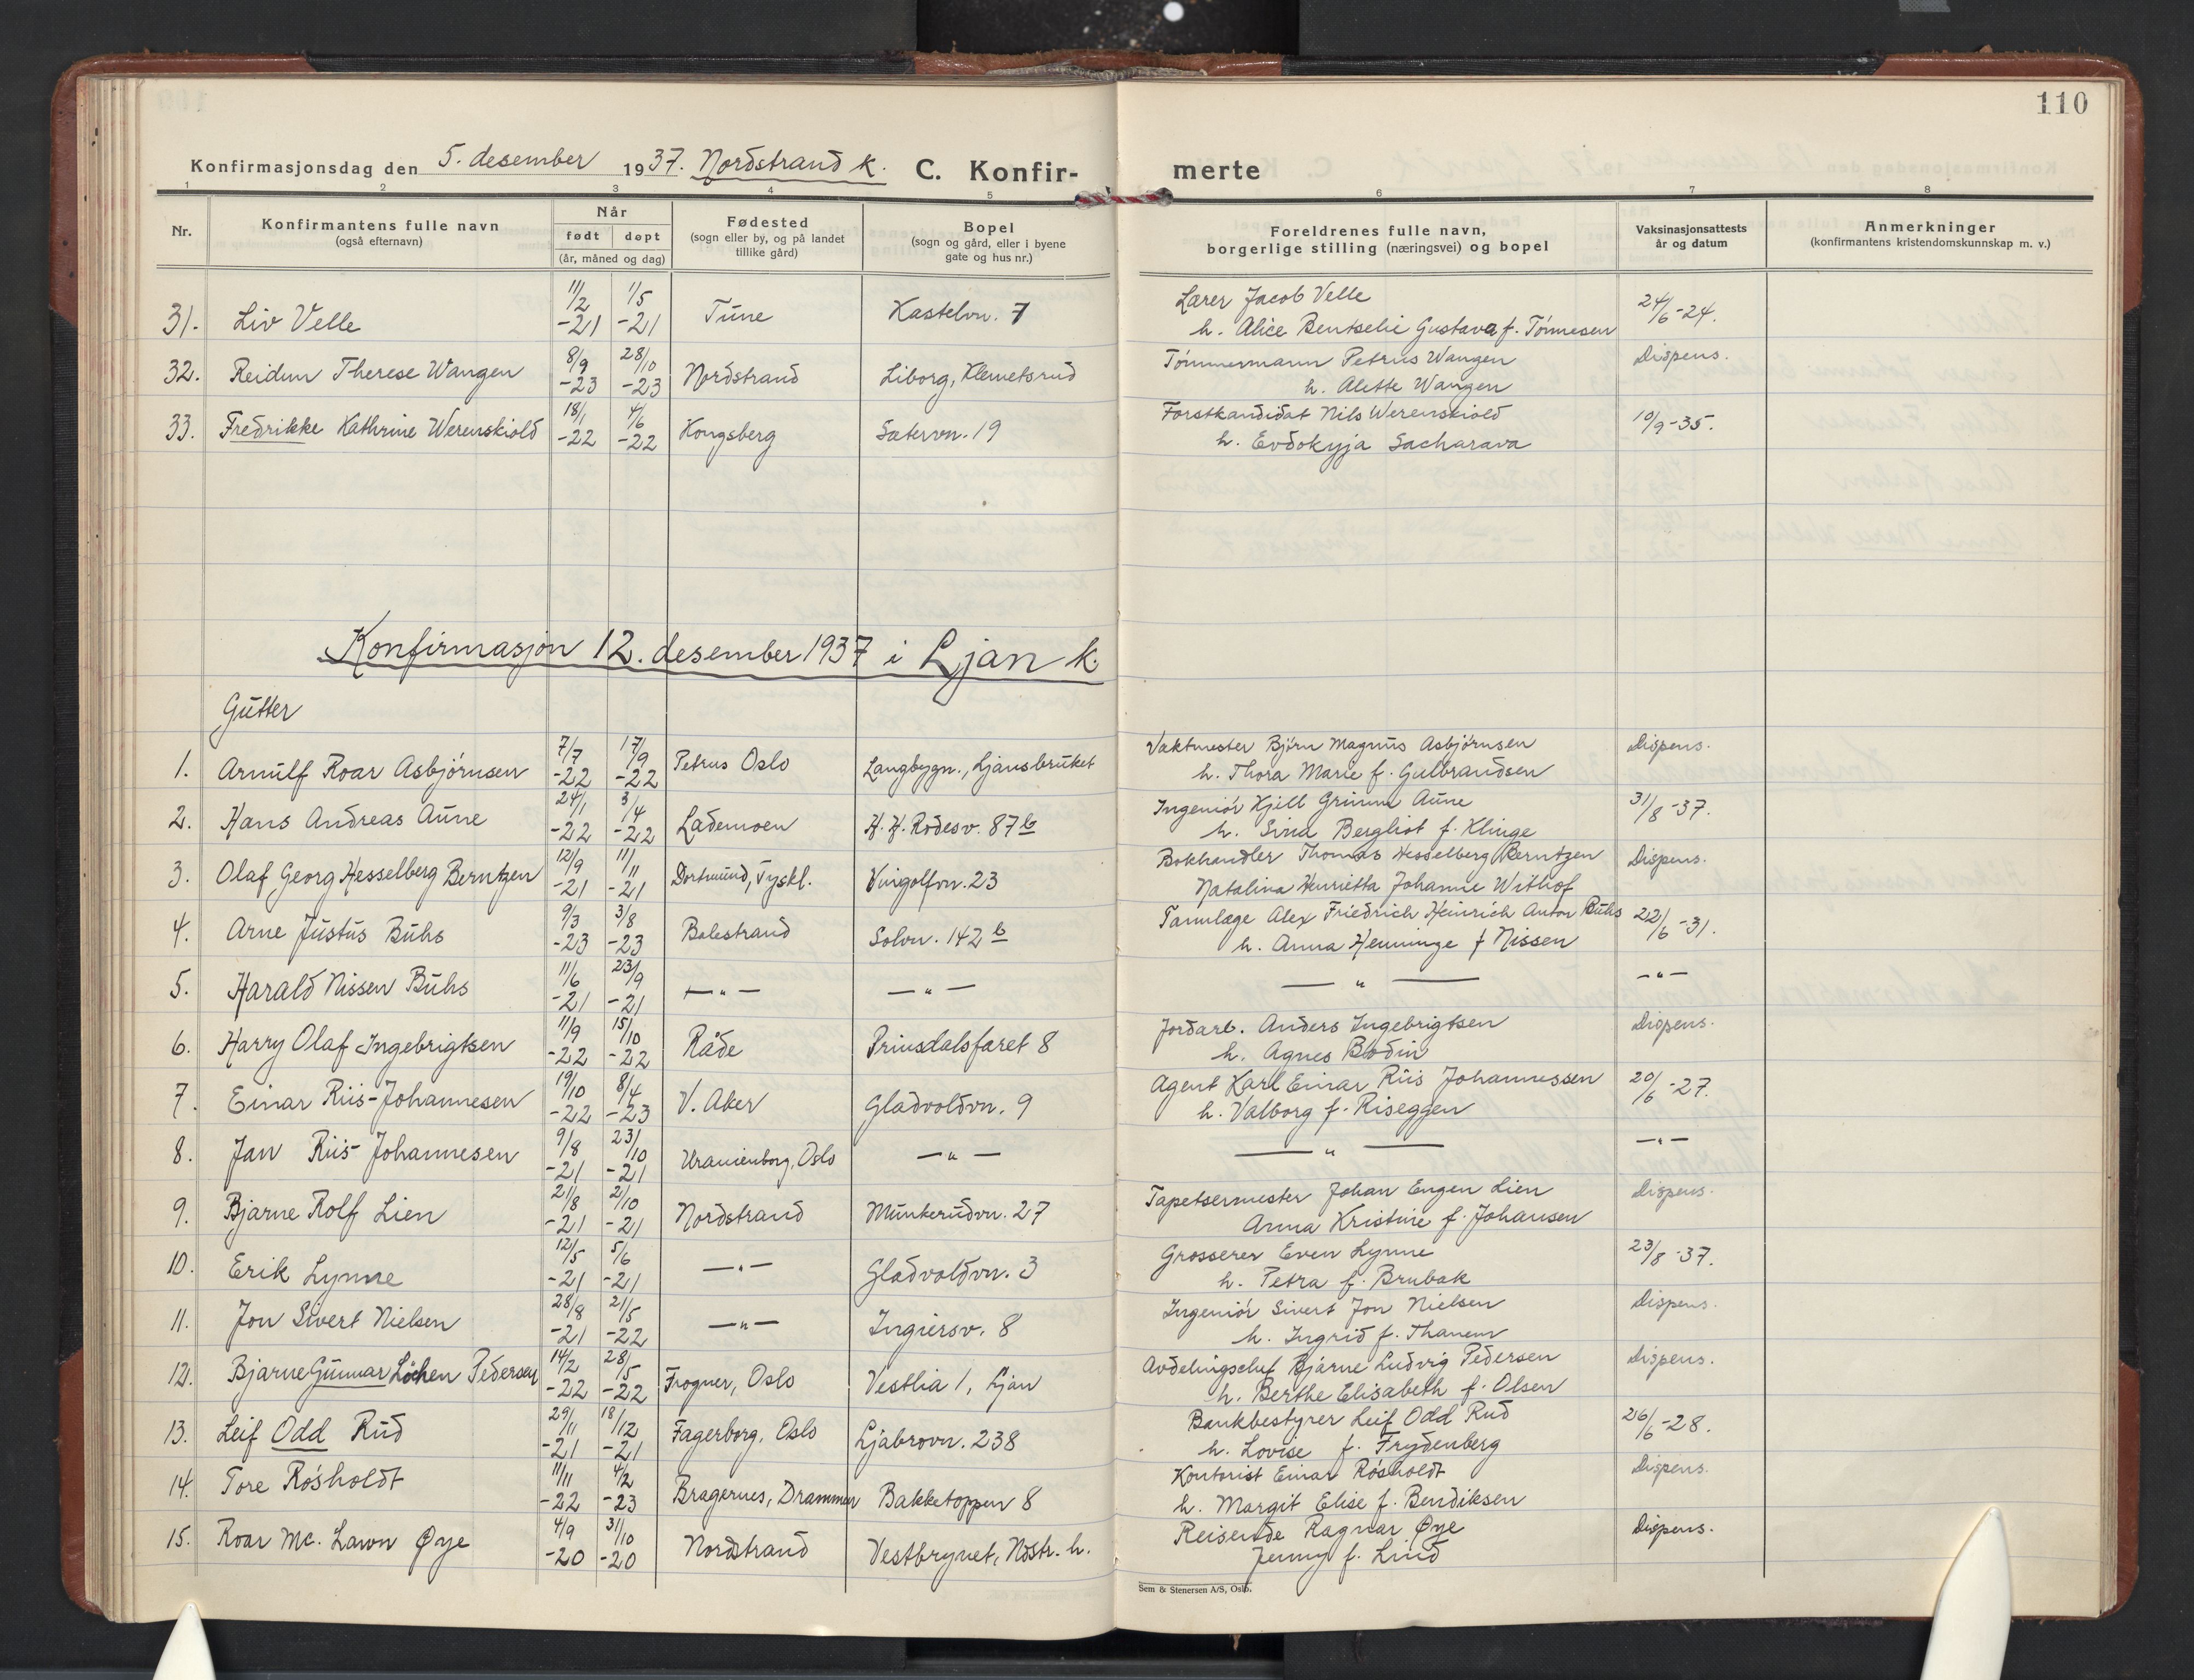 110
Konfirmasjonsdag den 5. desember 1937. Nordstrand k. C. Konfir- merte
1 2 3 4 5 6 7 8
Nr. Konfirmantens fulle navn (også efternavn) Når født døpt (år, måned og dag) Fødested (sogn eller by, og på landet tillike gård) Bopel (sogn og gård, eller i byene gate og hus nr.) Foreldrenes fulle navn, borgerlige stilling (næringsvei) og bopel Vaksinasjonsattests år og datum Anmerkninger (konfirmantens kristendomskunnskap m. v.)
31. Liv Velle 11/2 -21 1/5 -21 Tune Kastelvn. 7 Lærer Jacob Velle h. Alice Bentselie Gustava f. Tønnesen 24/6-24.
32. Reidun Therese Wangen 8/9 -23 28/10 -23 Nordstrand Liborg, Klemetsrud Tømmermann Petrus Wangen h. Alette Wangen Dispens.
33. Fredrikke Kathrine Werenskiold 18/1 -22 4/6 -22 Kongsberg Sætervn. 19 Forstkandidat Nils Werenskiold h. Evdokyja Sacharava 10/9-35.
Konfirmasjon 12. desember 1937 i Ljan k.
Gutter
1. Arnulf Roar Asbjørnsen 7/7 -22 17/9 -22 Petrus Oslo Langbygn., Ljansbruket Vaktmester Bjørn Magnus Asbjørnsen h. Thora Marie f. Gulbrandsen Dispens.
2. Hans Andreas Aune 24/1 -22 3/4 -22 Lademoen H. H. Rodesv. 87 b Ingeniør Kjell Grimm Aune h. Sina Bergliot f. Klinge 31/8-37.
3. Olaf Georg Hesselberg Berntzen 12/9 -21 11/11 -21 Dortmund, Tyskl. Vingolfvn. 23 Bokhandler Thomas Hesselberg Berntzen Natalina Henrietta Johanne Withof Dispens.
4. Arne Justus Buhs 9/3 -23 3/8 -23 Balestrand Solvn. 142 b Tannlæge Alex Friedrich Heinrich Anton Buhs h. Anna Henninge f Nissen 22/6-31.
5. Harald Nissen Buhs 11/6 -21 23/9 -21 — " — — " — — " — — " —
6. Harry Olaf Ingebrigtsen 11/9 -22 15/10 -22 Råde Prinsdalsfaret 8 Jordarb. Anders Ingebrigtsen h. Agnes Bodin Dispens.
7. Einar Riis-Johannesen 19/10 -22 8/4 -23 V. Aker Gladvoldvn. 9 Agent Karl Einar Riis Johannessen h. Valborg f. Riseggen 20/6-27.
8. Jan Riis-Johannesen 9/8 -21 23/10 -21 Uranienborg, Oslo — " — — " — — " —
9. Bjarne Rolf Lien 21/8 -21 2/10 -21 Nordstrand Munkerudvn. 27 Tapetsermester Johan Eugen Lien Anna Kristine f. Johansen Dispens.
10. Erik Lynne 12/5 -21 5/6 -21 — " — Gladvoldvn. 3 Grosserer Even Lynne h. Petra f. Brubak 23/8-37.
11. Jon Sivert Nielsen 28/8 -21 21/5 -22 — " — Ingiersv. 8 Ingeniør Sivert Jon Nielsen h. Ingrid f. Thanem Dispens.
12. Bjarne Gunnar Løchen Pedersen 14/2 -22 28/5 -22 Frogner, Oslo Vestlia 1, Ljan Avdelingschef Bjarne Ludvig Pedersen h. Berthe Elisabeth f. Olsen Dispens.
13. Leif Odd Rud 29/11 -21 18/12 -21 Fagerborg, Oslo Ljabrovn. 238 Bankbestyrer Leif Odd Rud h. Lovise f. Frydenberg 26/6-28.
14. Tore Røsholdt 11/11 -22 4/2 -23 Bragernes, Drammen Bakketoppen 8 Kontorist Einar Røsholdt h. Margit Elise f. Bendiksen Dispens.
15. Roar Mc. Lawn Øye 4/9 -20 31/10 -20 Nordstrand Vestbrynet, Ndstr. h. Reisende Ragnar Øye Jenny f. Lind Dispens.
Sem & Stenersen A/S, Oslo.